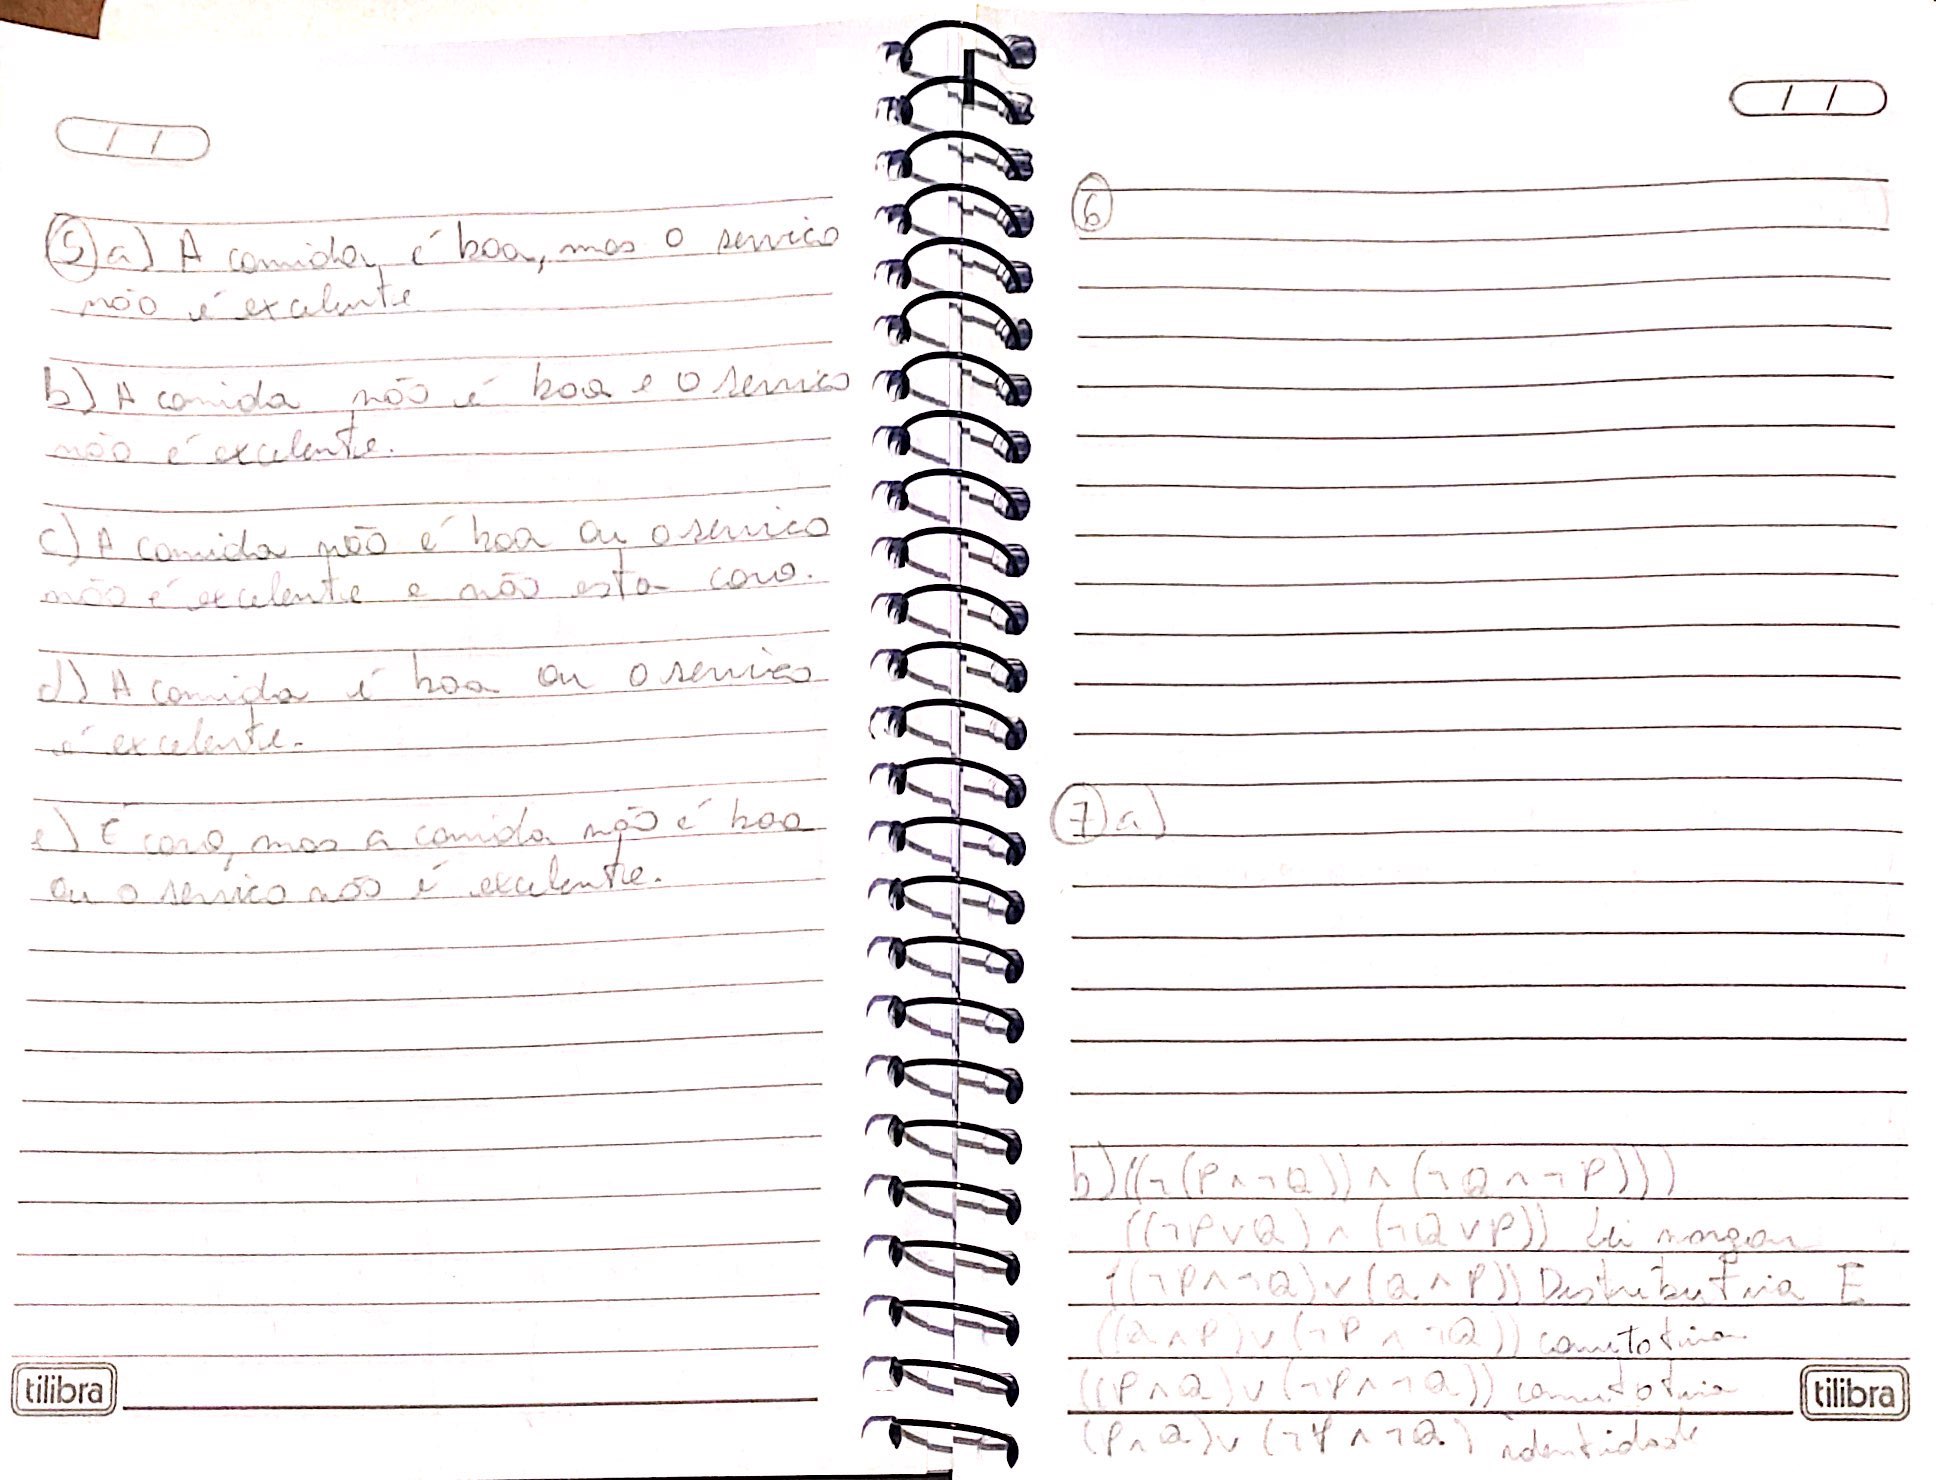 / /
5 a) A comida é boa, mas o servico
não é excelente
b) A comida não é boa e o servico
não é excelente.
c) A comida não é boa ou o servico
não é excelente e não esta caro.
d) A comida é boa ou o servico
é excelente.
e) É caro, mas a comida não é boa
ou o servico não é excelente.
tilibra
/ /
6
7 a)
b) ((¬(P∧¬Q)) ∧ (¬Q∧¬P)))
((¬P∨Q) ∧ (¬Q∨P)) Lei morgan
((¬P∧¬Q)∨(Q∧P)) Distributiva E
((Q∧P)∨(¬P∧¬Q)) comutotiva
((P∧Q)∨(¬P∧¬Q)) comutotiva
tilibra
(P∧Q)∨(¬P∧¬Q) identidade